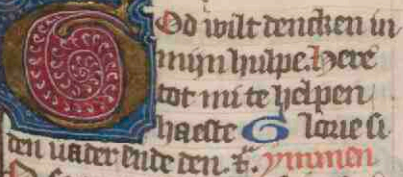 God wilt dencken in
mijn hulpe. Here
tot mi te helpen
haeste G loue si
den uader ende den. ymmen